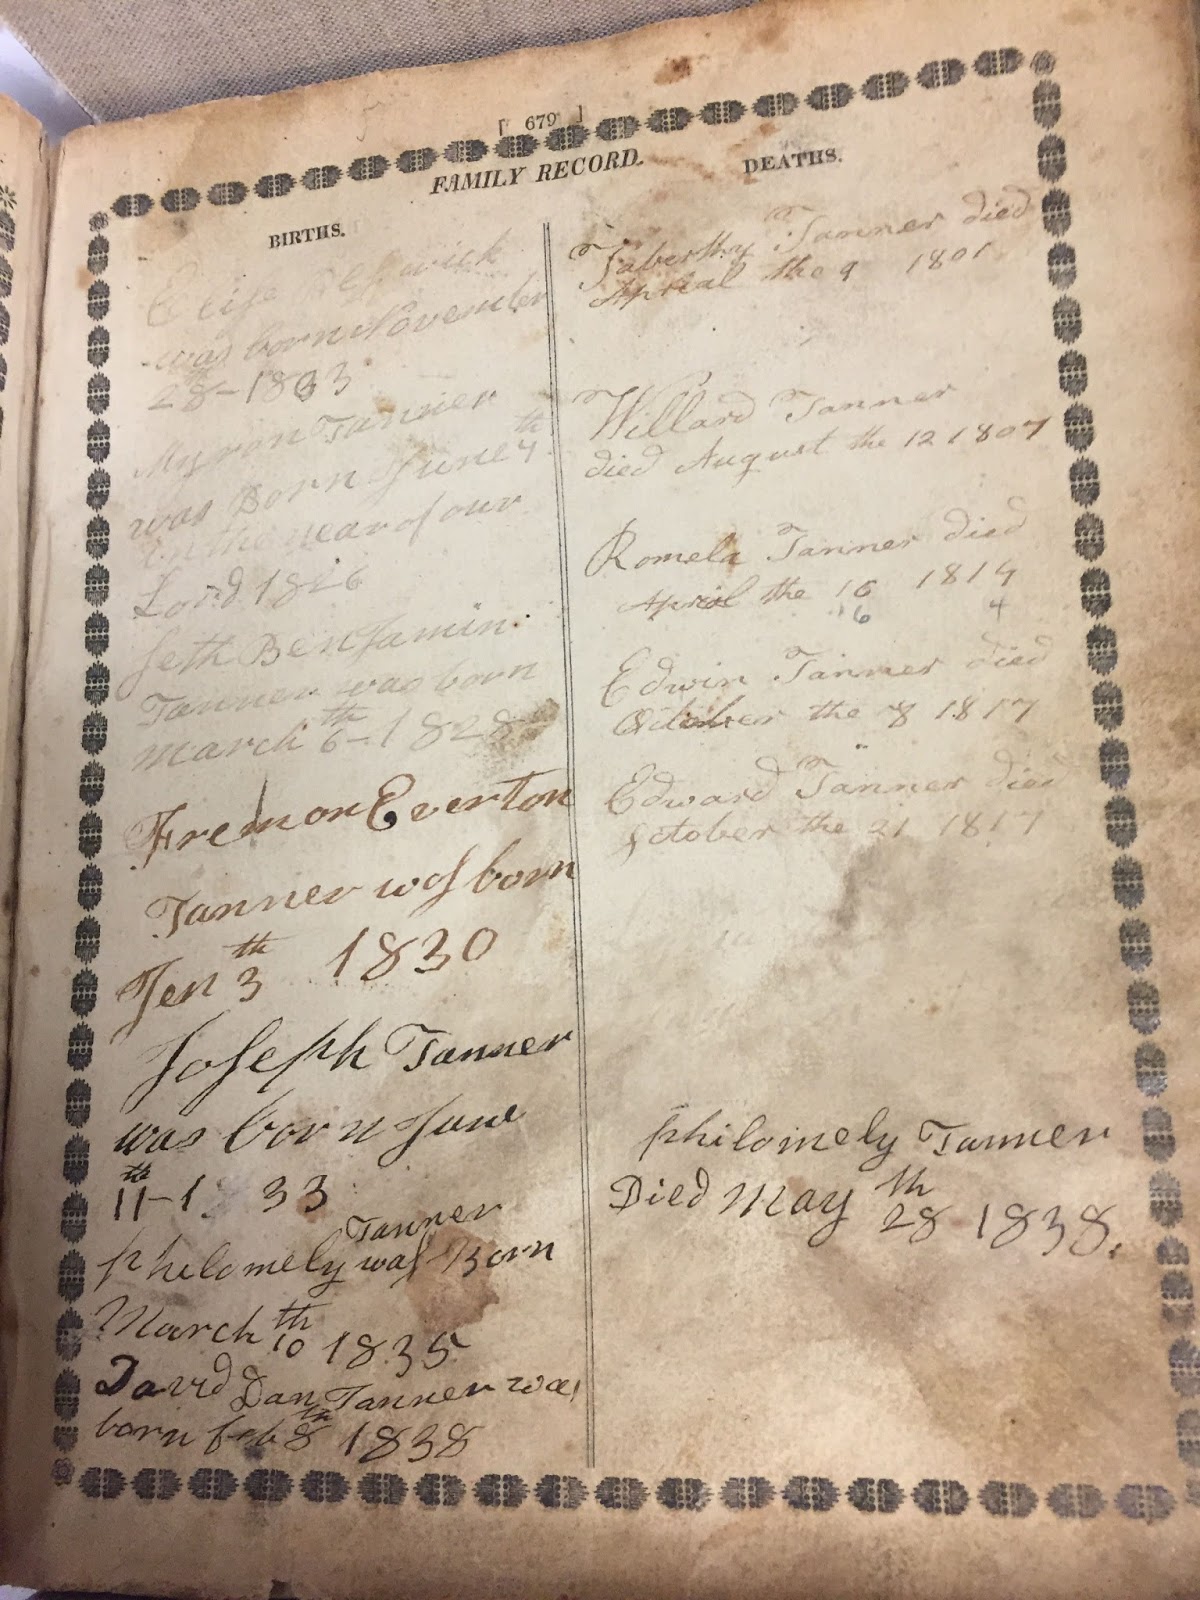 [ 679 ]
FAMILY RECORD.
BIRTHS.
Elise
was born November
28 - 1833
Myron Tanner
was Born June 7th
in the year of our
Lord 1826
Seth Benjamin
Tanner was born
March 6th - 1828
Fremon Everton
Tanner was born
Jen 3th 1830
Joseph Tanner
was born June
11th - 1 33
philomely Tanner was Born
March 10th 1835
David Dan Tanner was
born feb 8th 1838
DEATHS.
Taberthy Tanner died
Apreal the 9 1801
Willard Tanner
died August the 12 1807
Romela Tanner died
April the 16 1814
6 4
Edwin Tanner died
October the 8 1817
Edward Tanner died
October the 21 1817
philomely Tanner
Died May 28th 1838.